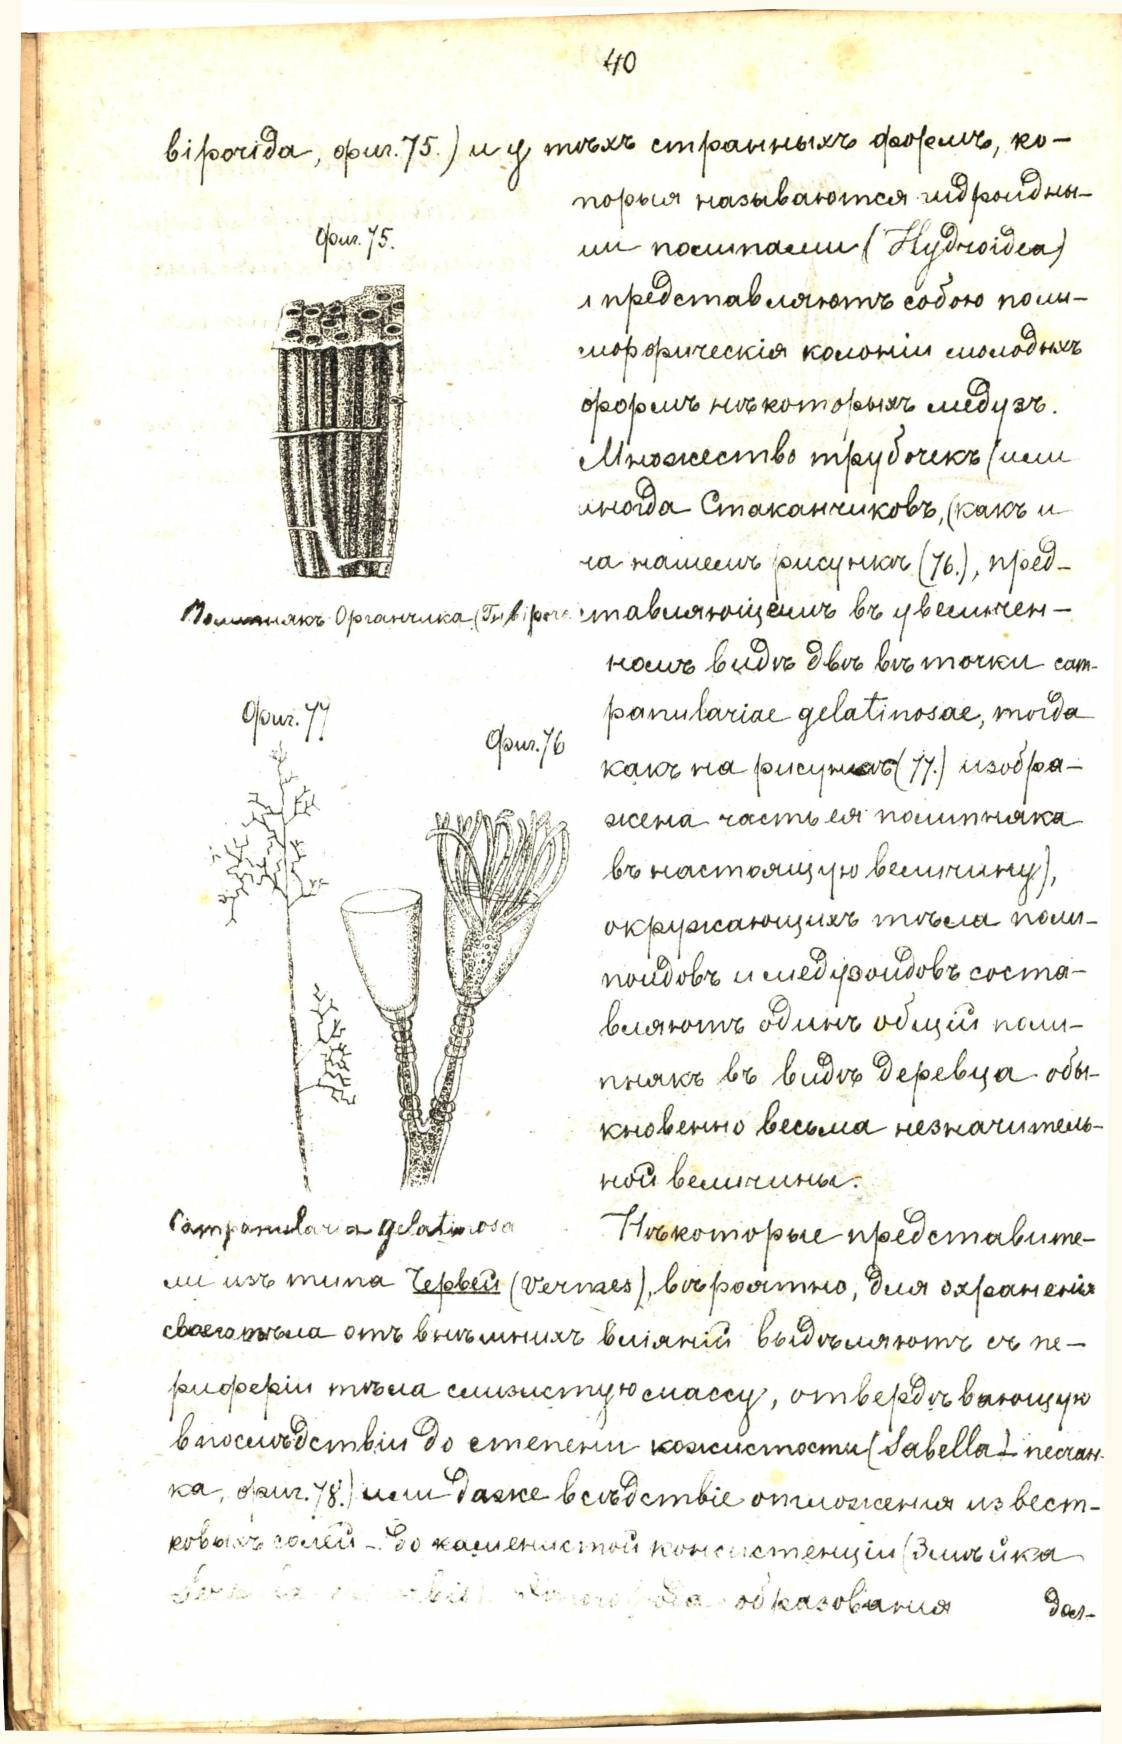 40
biporida, фиг. 75.) и у тѣхъ странныхъ формъ, ко-
торыя называются гидроидны-
ми полипами (Hydroidea)
и представляютъ собою поли-
морфическія колоніи молодыхъ
формъ нѣкоторыхъ медузъ.
Множество трубочекъ (или
иногда стаканчиковъ, (какъ и
на нашемъ рисункѣ (76.), пред-
ставляющемъ въ увеличен-
номъ видѣ двѣ вѣточки cam-
panulariae gelatinosae, тогда
какъ на рисункѣ (77.) изобра-
жена часть ея полипняка
въ настоящую величину),
окружающихъ тѣла поли-
поидовъ и медузоидовъ соста-
вляютъ одинъ общій поли-
пнякъ въ видѣ деревца обы-
кновенно весьма незначитель-
ной величины.
Фиг. 75.
Полипнякъ Органчика (Tubipora
Фиг. 77
Фиг. 76
Campanularia gelatinosa
Нѣкоторые представите-
ли изъ типа Червей (Vermes), вѣроятно, для охраненія
своего тѣла отъ внѣшнихъ вліяній выдѣляютъ съ пе-
риферіи тѣла слизистую массу, отвердѣвающую
впослѣдствіи до степени кожистости (Sabella – песчан-
ка, фиг. 78.) или даже вслѣдствіе отложенія извест-
ковыхъ солей – до каменистой консистенціи (Змѣйка
образованія дал-